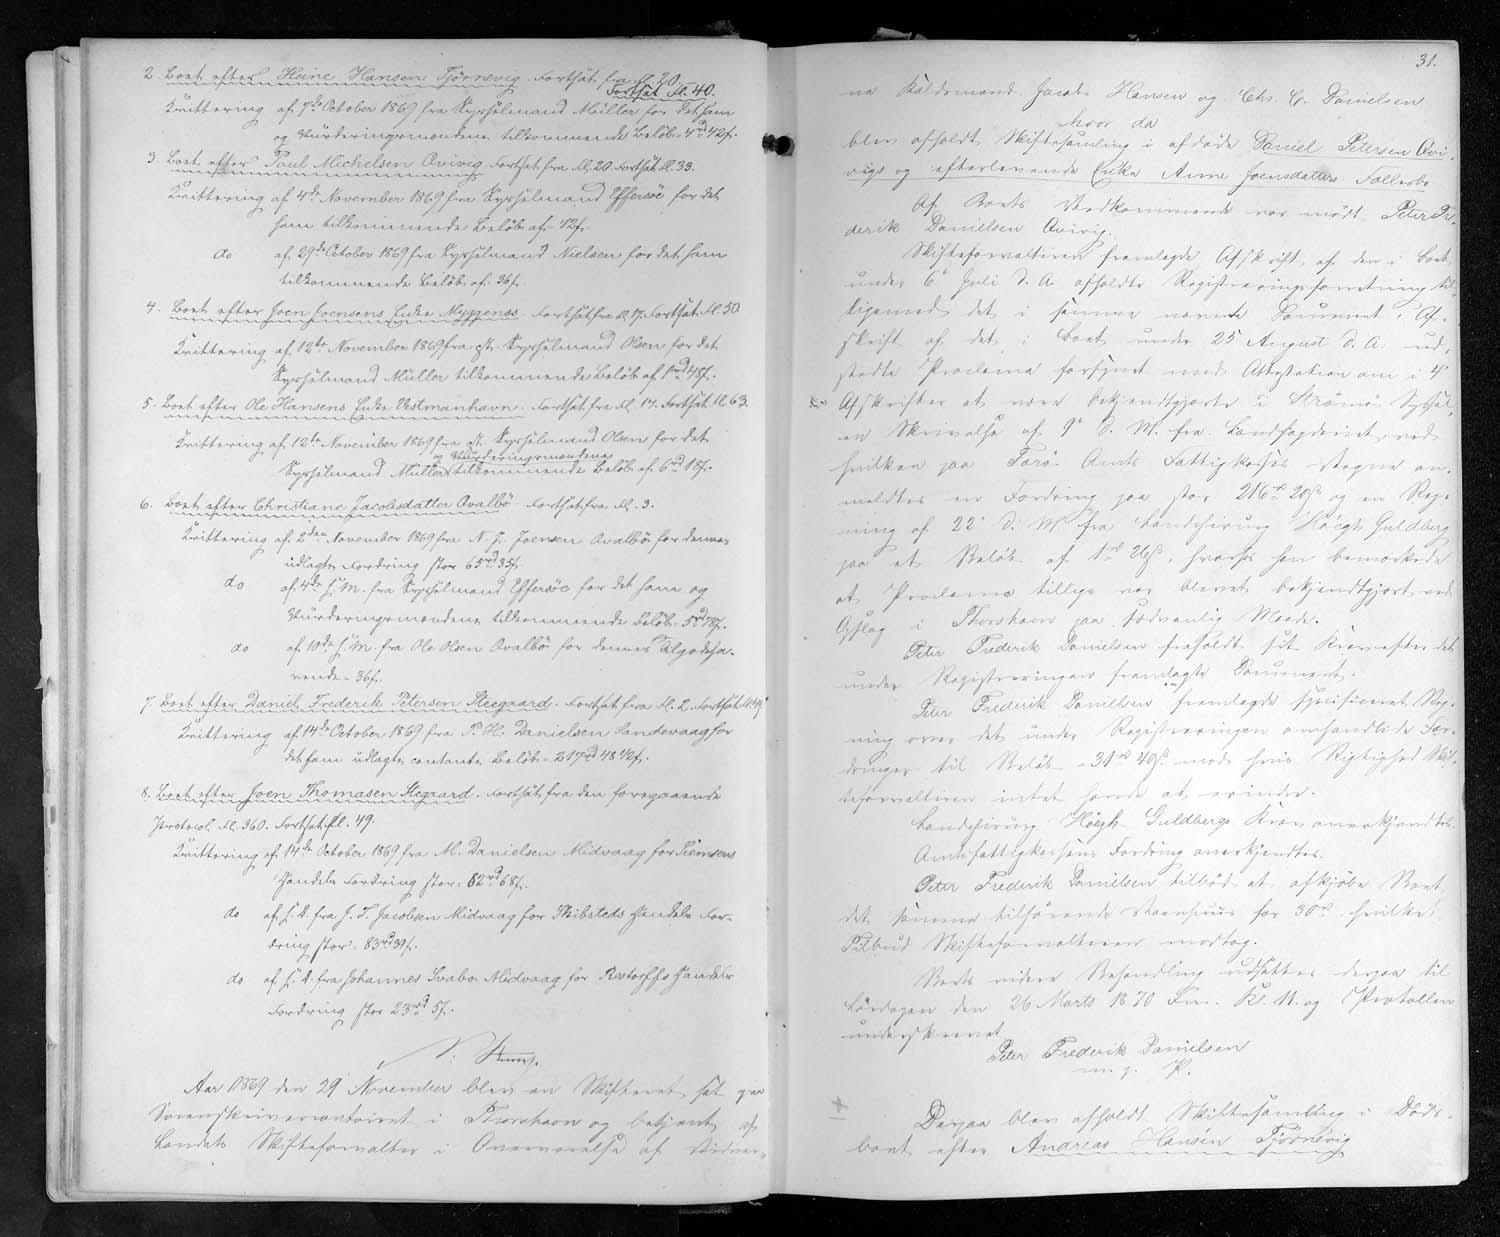 2. Boet efter Heine Hansen Tjørnevig. Fortsat fra fl. 20.
Fortsat Fl. 40.
Qvittering af 7de October 1869 fra Sysselmand Müller for det ham
og Vurderingsmændene tilkommende Beløb - 4rd 42ß.
3. Boet efter Paul Michelsen Qvivig. Fortsat fra Fl. 20. Fortsat Fl. 33.
Qvittering af 4de November 1869 fra Sysselmand Effersöe for det
ham tilkommende Beløb af - 42ß.
do af 29de October 1869 fra Sysselmand Nielsen for det ham
tilkommende Beløb af: 36ß.
4. Boet efter Joen Joensens Enke Nyggenæs. Fortsat fra fl. 17. Fortsat Fl. 50
Qvittering af 12te November 1869 fra cst. Sysselmand Olsen for det
Sysselmand Müller tilkommende Beløb af 1rd 48ß.
5. Boet efter Ole Hansens Enke Vestmanhavn. Fortsat fra Fl. 17. Fortsat Fl. 63.
Qvittering af 12te November 1869 fra cst. Sysselmand Olsen for det
og Vurderingsmændene
Sysselmand Müller tilkommende Beløb af 6rd 18ß.
6. Boet efter Christiane Jacobsdatter Qvalbö. Fortsat fra Fl. 3.
Qvittering af 2den November 1869 fra N. J. Joensen Qvalbö for dennes
udlagte Fordring stor 65rd 35ß.
do af 4de s. M. fra Sysselmand Effersöe for det ham og
Vurderingsmændene tilkommende Beløb - 5rd 78ß.
do af 10de s. M. fra Ole Olsen Qvalbö for dennes Tilgodeha-
vende - 36ß.
7. Boet efter Daniel Frederik Petersen Steegaard. Fortsat fra Fl. 2. Fortsat Fl. 49.
Qvittering af 14de October 1869 fra P. H. Danielsen Sandevaag for
det ham udlagte contante Beløb - 217rd 48 1/2ß.
8. Boet efter Joen Thomasen Stegaard. Fortsat fra den foregaaende
Protocol Fl. 360. Fortsat Fl. 49.
Qvittering af 14de October 1869 fra M. Danielsen Midvaag for Siemsens
Handels Fordring stor: 62rd 68ß.
do af s. D. fra J. T. Jacobsen Midvaag for Skibsteds Handels For-
dring stor: 83rd 39ß.
do af s. D. fra Johannes Svabo Midvaag for Restorffs Handels
Fordring stor 23rd 5ß.
Aar 1869 den 29 November blev en Skifteret sat paa
Sorenskrivercontoiret i Thorshavn og betjent af
Landets Skifteforvalter i Overværelse af Vidner-
31.
ne Kaldsmænd Jacob Hansen og Chr. C. Danielsen
hvor da
blev afholdt Skiftesamling i afdøde Daniel Petersen Qvi-
vigs og efterlevende Enke Anne Joensdatters Fællesbo
Af Boets Vedkommende var mødt Peter Fre-
derik Danielsen Qvivig.
Skifteforvalteren fremlagde Afskrift af den i Boet
under 6 Juli d. A. afholdte Registreringsforretning til-
ligemed det i samme nævnte Document, Af-
skrift af det i Boet under 25 August d. A. ud-
stedte Proclama forsynet med Attestation om i 4
Afskrifter at være bekjendtgjorte i Strømø Syssel,
en Skrivelse af 9 d. M. fra Landfogderiet, ved
hvilken paa Færø Amts Fattigkasses Vegne an-
meldtes en Fordring paa stor 216rd 20ß og en Reg-
ning af 22 d. M. fra Landchirurg Høegh Guldberg
paa et Beløb af 1rd 26ß, hvorhos han bemærkede
at Proclama tillige var blevet bekjendtgjort ved
Opslag i Thorshavn paa sædvanlig Maade.
Peter Frederik Danielsen fraholdt sit Krav efter det
under Registreringen fremlagte Document.
Peter Frederik Danielsen fremlagde specificeret Reg-
ning over det under Registreringen omhandlede For-
dringer til Beløb - 31rd 40ß mod hvis Rigtighed Skif-
teforvalteren intet havde at erindre.
Landchirurg Høegh Guldbergs Krav anerkjendtes.
Amtsfattigkassens Fordring anerkjendtes.
Peter Frederik Danielsen tilbød at afkjøbe Boet
det samme tilhørende Vaanhuus for 30rd hvilket
Tilbud Skifteforvalteren modtog.
Boets videre Behandling udsattes derpaa til
Lördagen den 26 Marts 1870 Fm. Kl. 11. og Protocollen
underskrevet
Peter Frederik Danielsen
m. f. P.
Derpaa blev afholdt Skiftesamling i Døds-
boet efter Andreas Hansen Tjørnevig